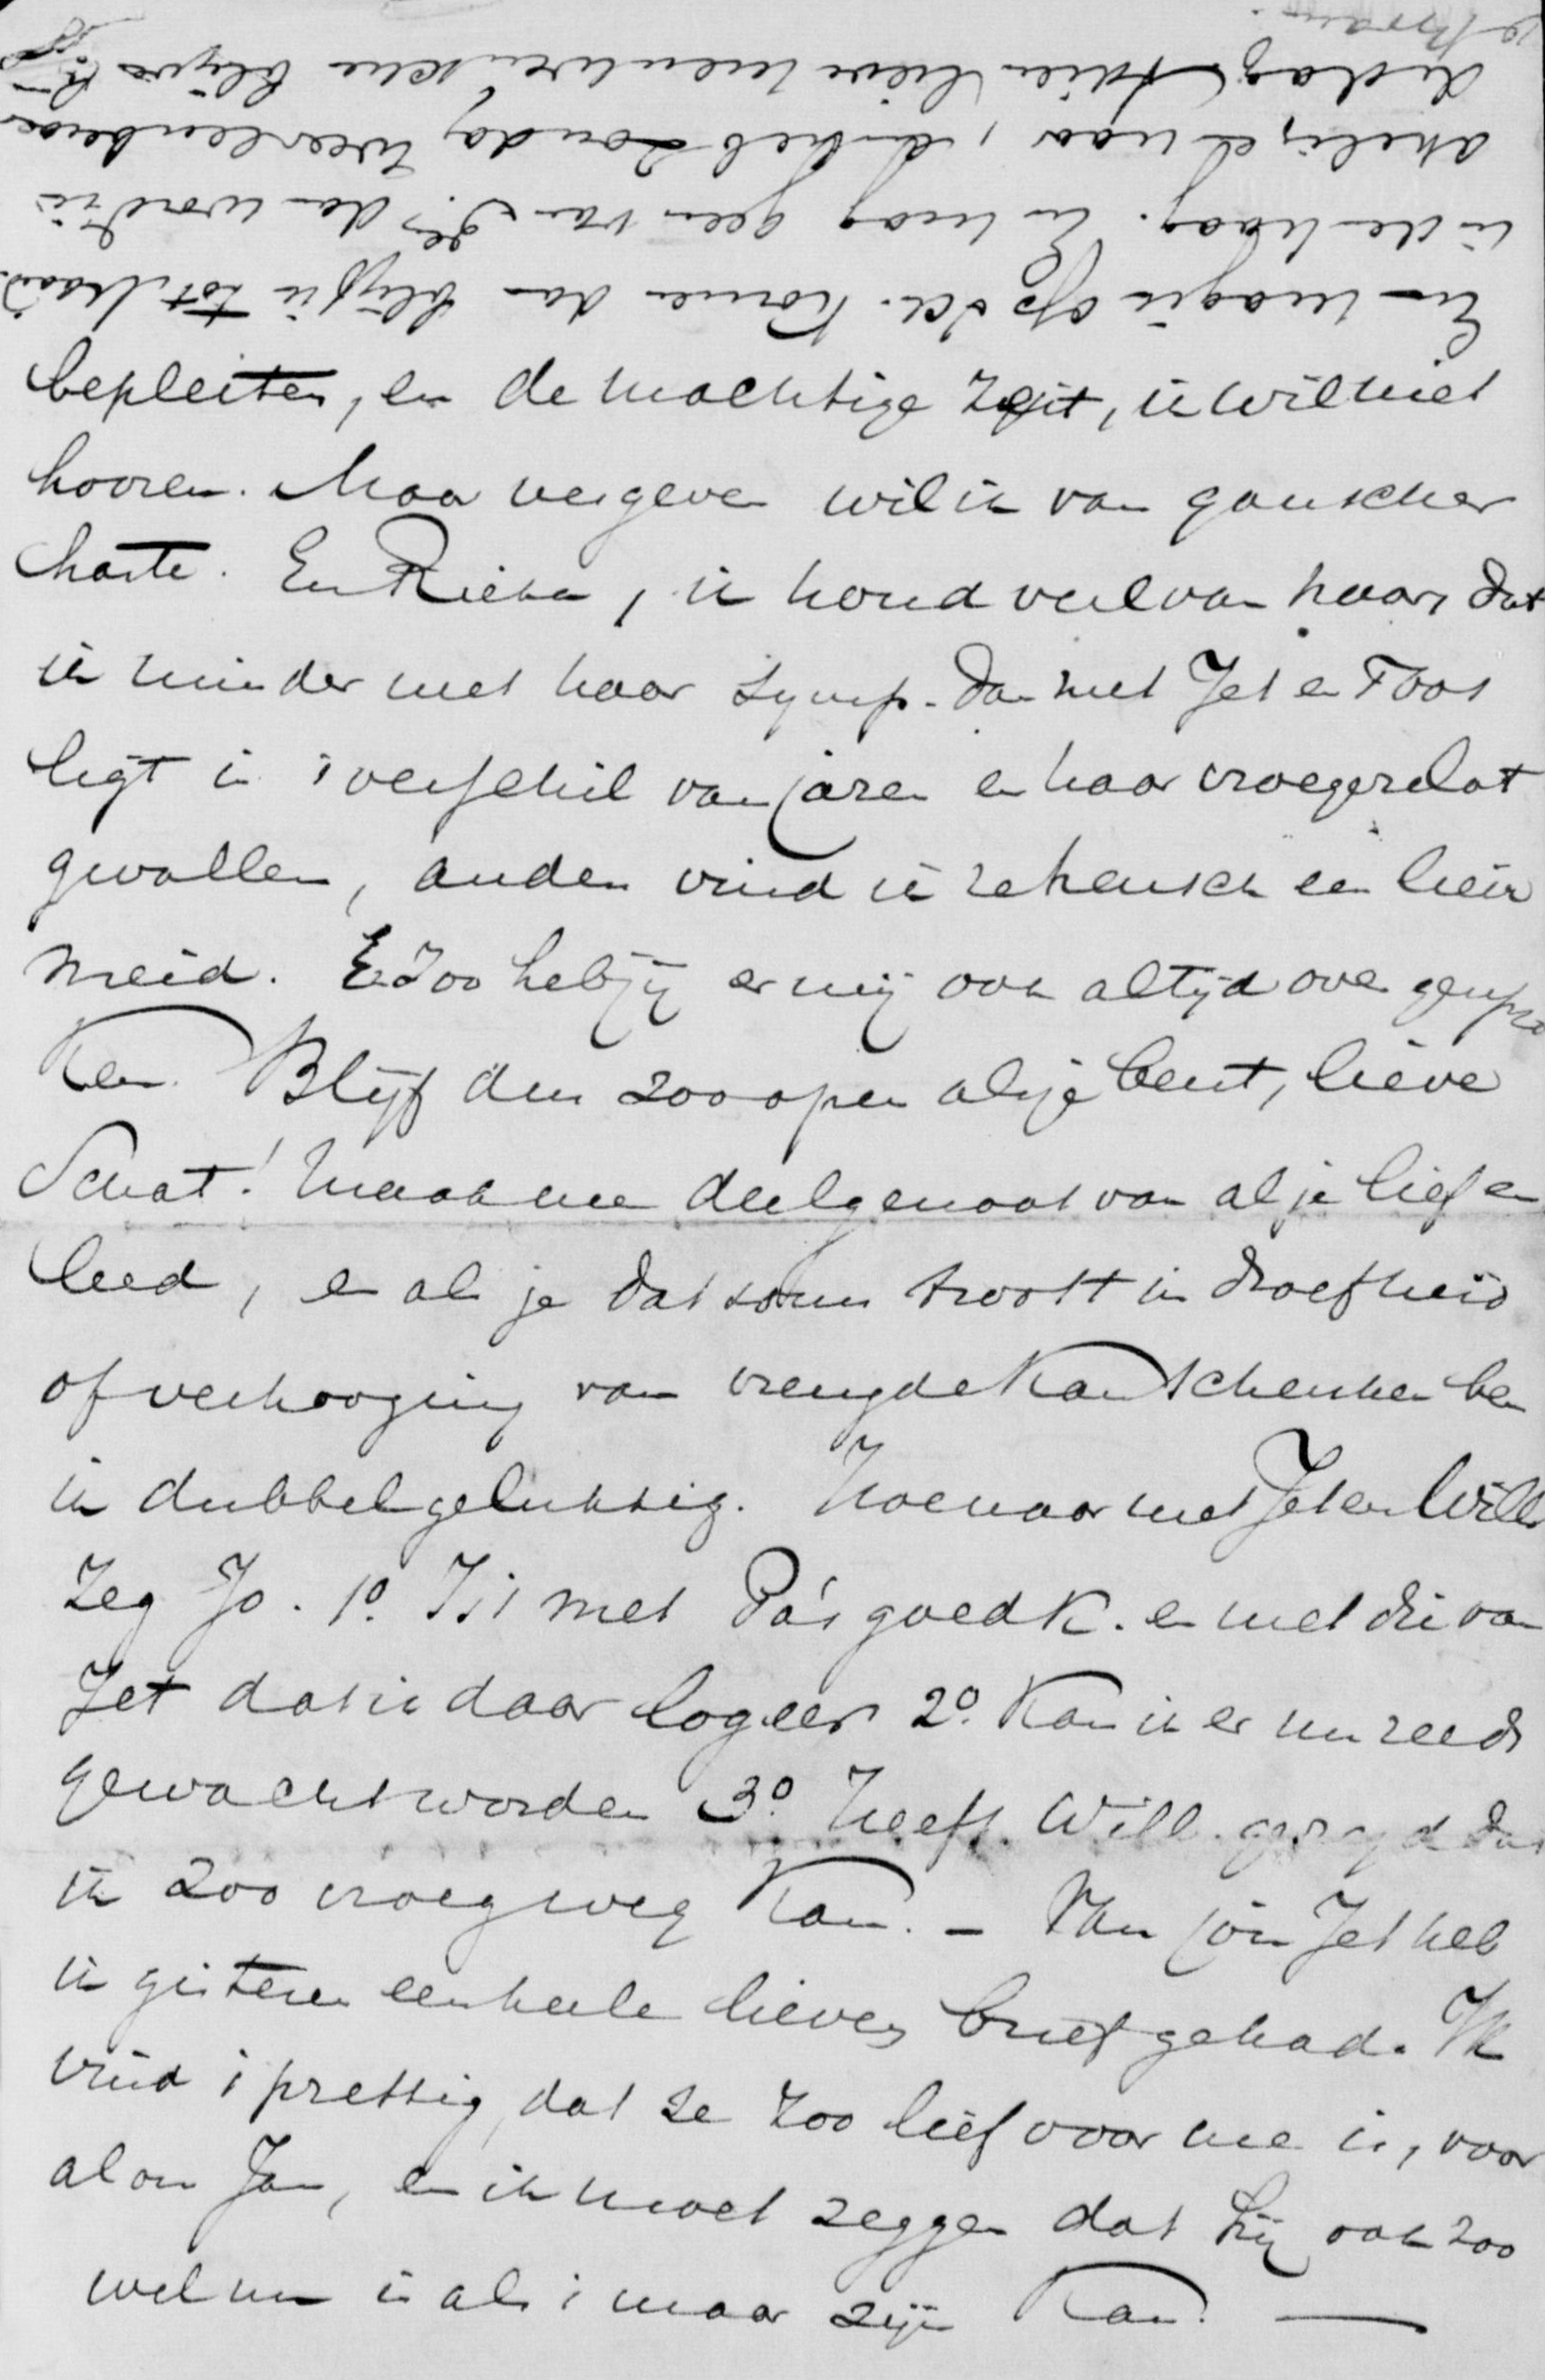 bepleiten, en de machtige zegt, ik wil niet
hooren. Maar vergeven wil ik van ganscher
harte. En Rieka, ik houd veel van haar, dat
ik minder met haar symp. dan met Jet en Toos
ligt in 't verschil van jaren en haar vroegere lot
gevallen, anders vind ik ze heusch een lieve
meid. En zoo heb jij er mij ook altijd over gespro
ken. Blijf dus zoo open als je bent, lieve
Schat! Maak me deelgenoot van al je lief en
leed, en als je dat soms troost in droefheid
of verhooging van vreugde kan schenken ben
ik dubbel gelukkig. Hoe naar met Jet en Will.
Zeg Jo. 1o. Is 't met Pa's goedk. en met die van
Jet dat ik daar logeer 2o. Kan ik er nu reeds
gewacht worden 3o. Heeft Will. gezegd dat
ik zoo vroeg weg kan. – Van jou Jet heb
ik gisteren een heele lieve brief gehad. Ik
vind 't prettig, dat ze zoo lief voor me is, voor
al om Jan, en ik moet zeggen dat hij ook zoo
wel nu is als 't maar zijn kan. —
En mag ik op sch. komen dan blijf ik tot Maand.
in den Haag. En mag geen van
akelig hè naar, ik heb Zondag weer
dag. Adieu lieve blijven